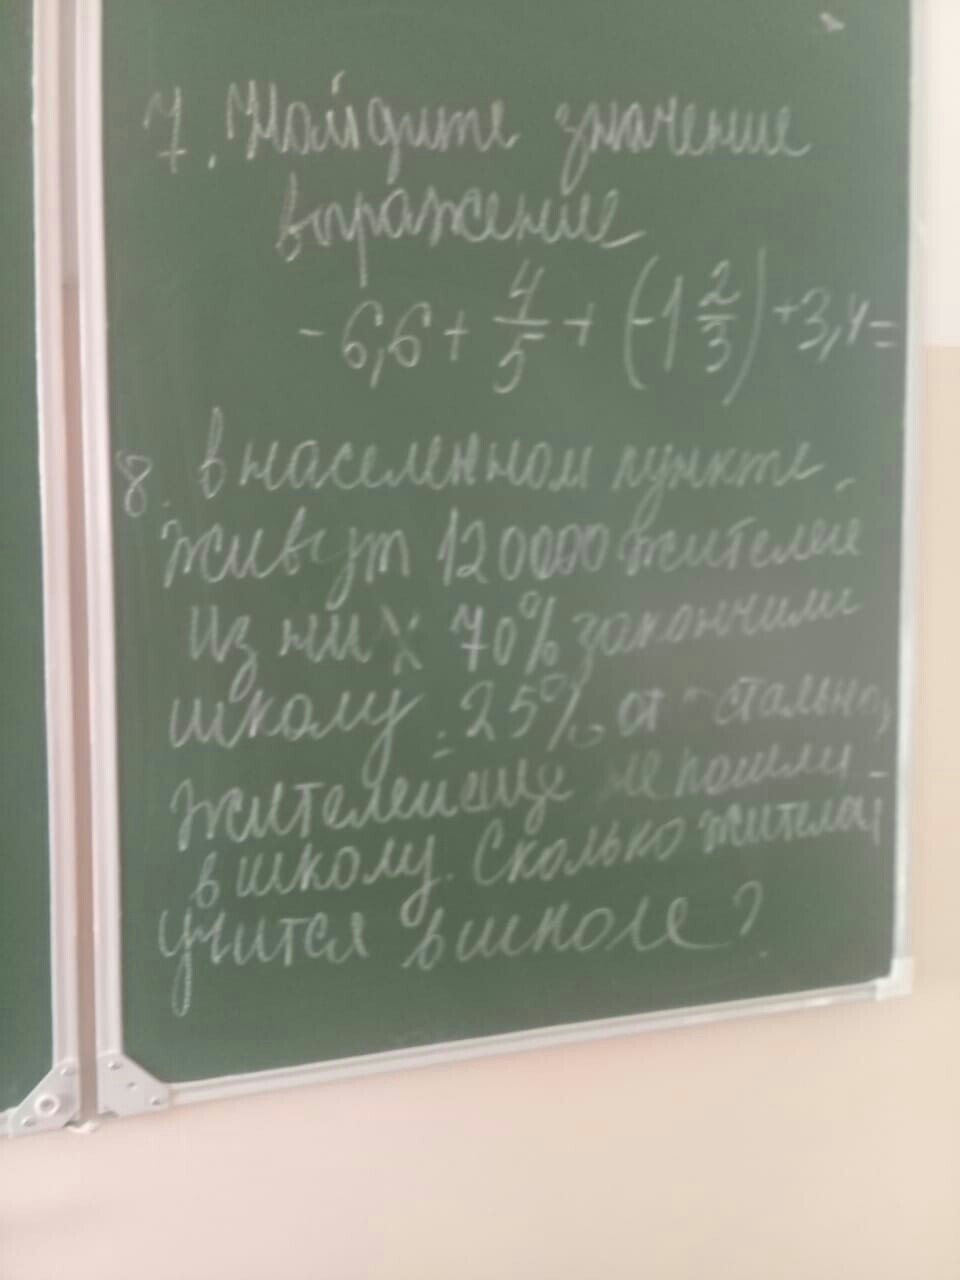 7. Найдите значение
выражение
-6,6 + 4/5 + (-1 2/3) + 3,4 =
8. В населенном пункте
живут 120000 жителей
Из них 70% закончили
школу. 25% от остальных
жителей еще не пошли
в школу. Сколько жителей
учится в школе?